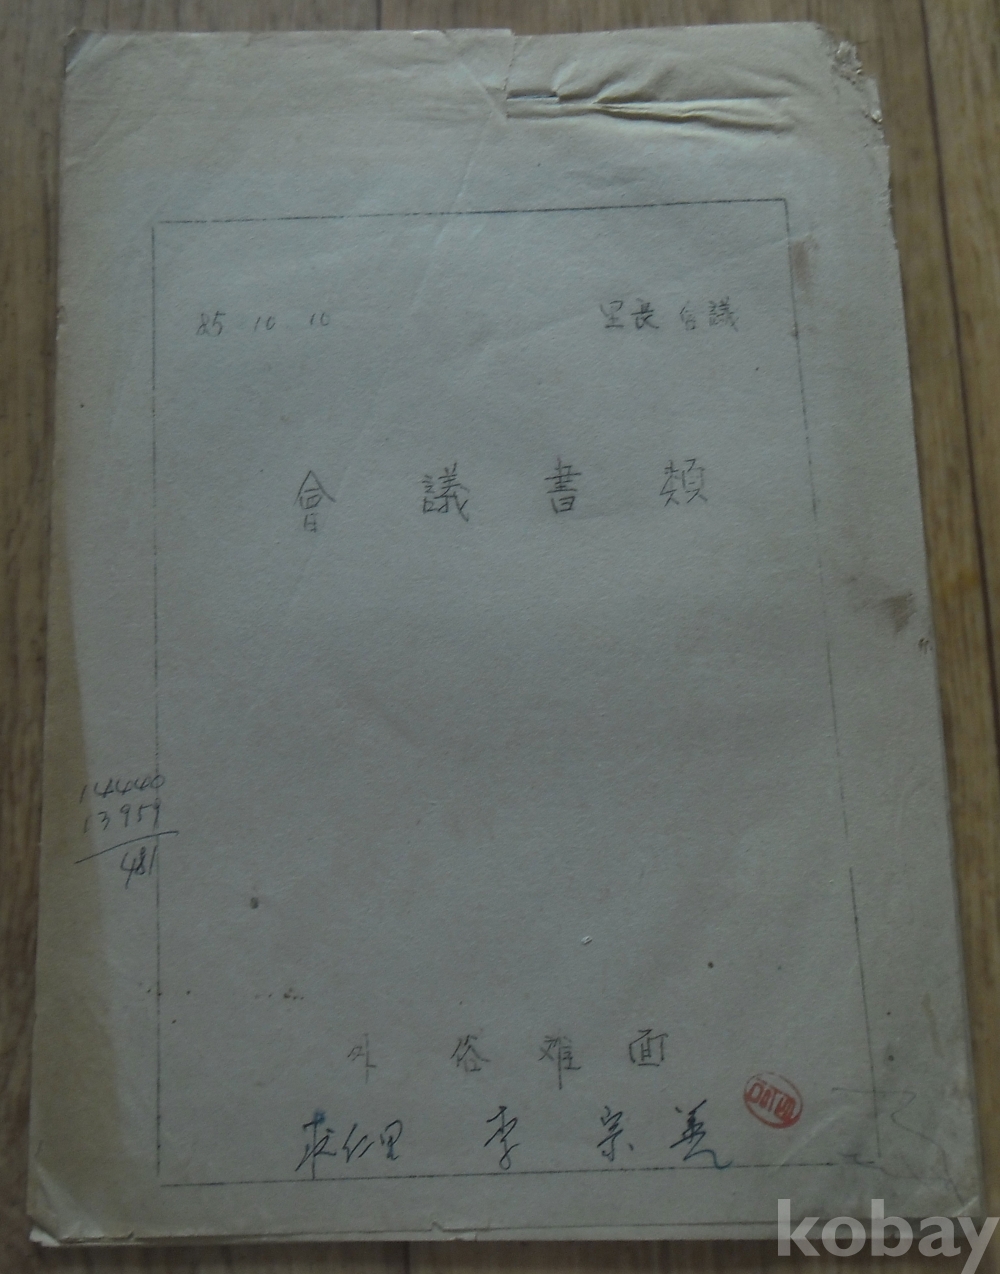 85 10 10 里長 会議
會 議 書 類
14440
13959
481
外 俗 離 面
求仁里 李 宗 善
kobay